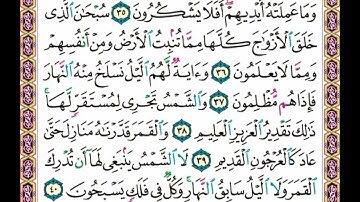 وَمَا عَمِلَتْهُ أَيْدِيهِمْ أَفَلَا يَشْكُرُونَ ٣٥ سُبْحَٰنَ ٱلَّذِى
خَلَقَ ٱلْأَزْوَٰجَ كُلَّهَا مِمَّا تُنۢبِتُ ٱلْأَرْضُ وَمِنْ أَنفُسِهِمْ
وَمِمَّا لَا يَعْلَمُونَ ٣٦ وَءَايَةٌ لَّهُمُ ٱلَّيْلُ نَسْلَخُ مِنْهُ ٱلنَّهَارَ
فَإِذَا هُم مُّظْلِمُونَ ٣٧ وَٱلشَّمْسُ تَجْرِى لِمُسْتَقَرٍّ لَّهَا
ذَٰلِكَ تَقْدِيرُ ٱلْعَزِيزِ ٱلْعَلِيمِ ٣٨ وَٱلْقَمَرَ قَدَّرْنَٰهُ مَنَازِلَ حَتَّىٰ
عَادَ كَٱلْعُرْجُونِ ٱلْقَدِيمِ ٣٩ لَا ٱلشَّمْسُ يَنۢبَغِى لَهَآ أَن تُدْرِكَ
ٱلْقَمَرَ وَلَا ٱلَّيْلُ سَابِقُ ٱلنَّهَارِ وَكُلٌّ فِى فَلَكٍ يَسْبَحُونَ ٤٠